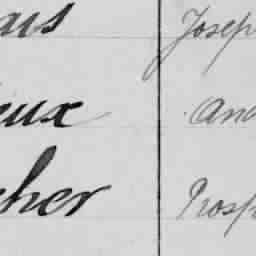 ais Josep
eux And
cher Prosp